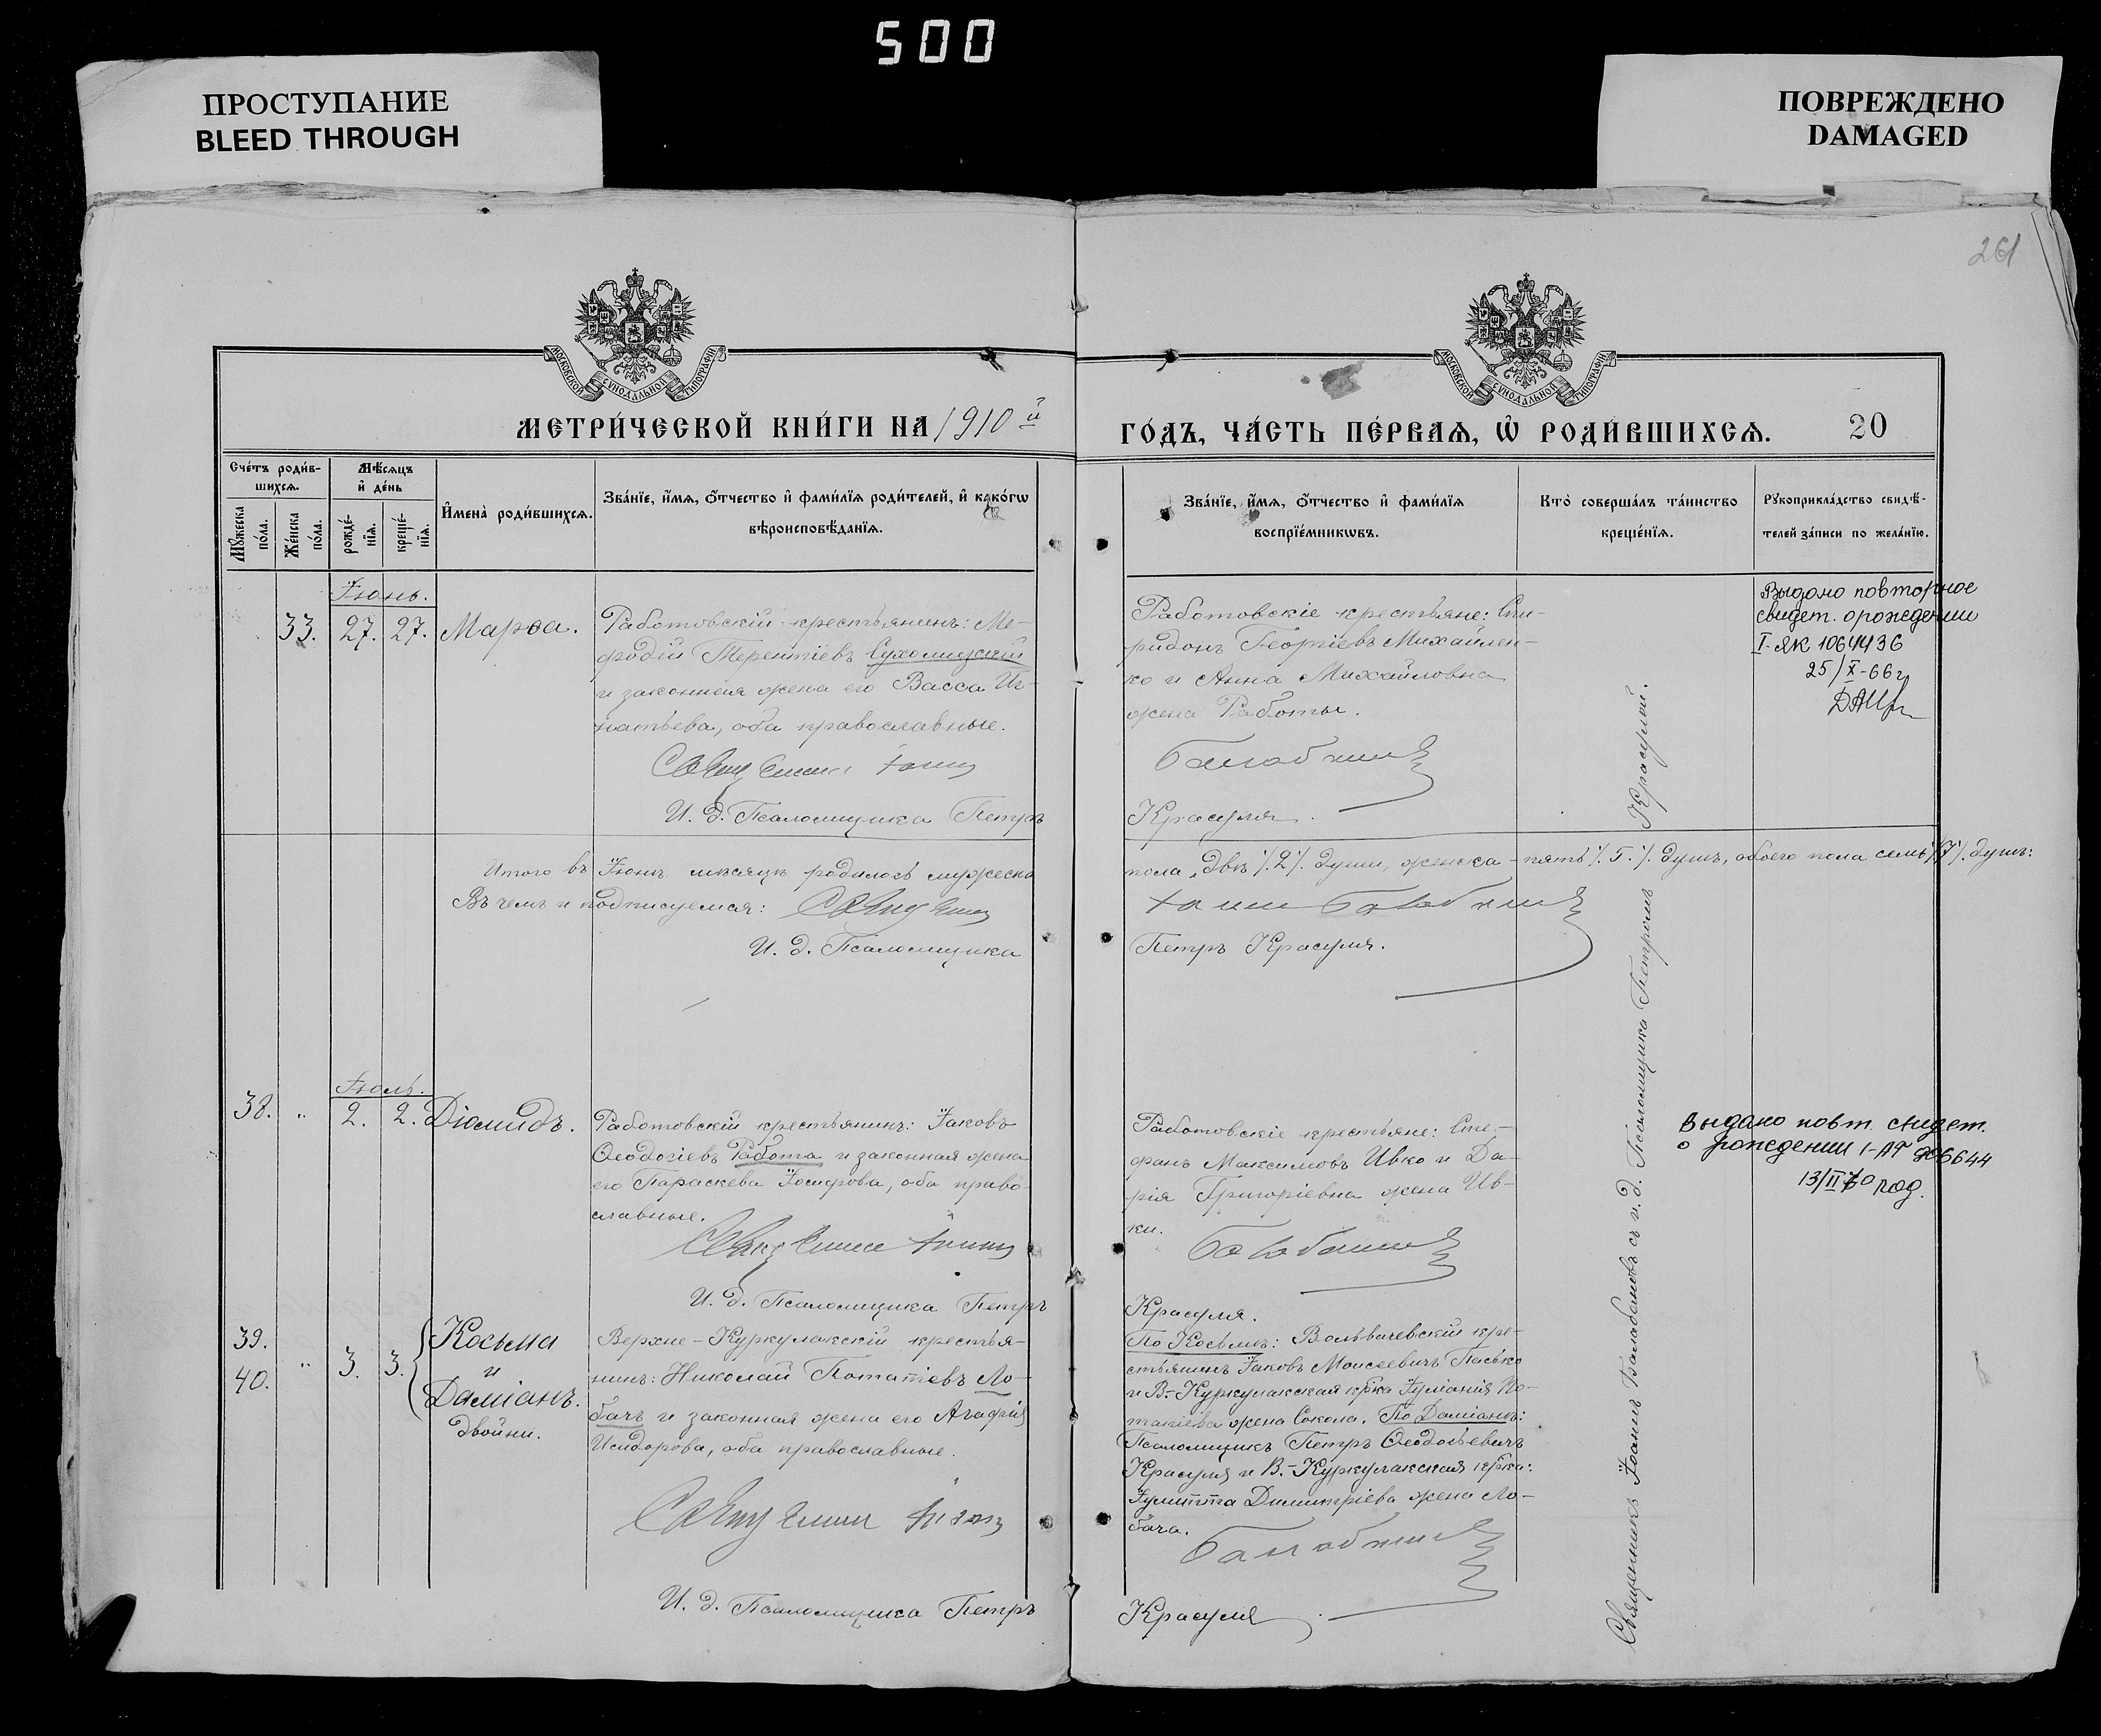 500
ПРОСТУПАНИЕ
BLEED THROUGH
ПОВРЕЖДЕНО
DAMAGED
261
МОСКОВСКОЙ СѴНОДАЛЬНОЙ ТИПОГРАФІИ
МОСКОВСКОЙ СѴНОДАЛЬНОЙ ТИПОГРАФІИ
МЕТРИ́ЧЕСКОЙ КНИ́ГИ НА 1910 й
ГО́ДЪ, ЧА́СТЬ ПЕ́РВАѦ, Ѡ҆ РОДИ́ВШИХСѦ. 20
Сче́тъ роди́в-
шихсѧ.
Мѣ́сѧцъ
и҆ де́нь
Мꙋ́жеска
по́ла.
Же́нска
по́ла.
рожде́-
нїѧ.
креще́-
нїѧ.
И҆мена̀ роди́вшихсѧ.
Зва́нїе, и҆́мѧ, ѻ҆́тчество и҆ фами́лїѧ роди́телей, и҆ како́гѡ
вѣроисповѣ́данїѧ.
Зва́нїе, и҆́мѧ, ѻ҆́тчество и҆ фами́лїѧ
воспрїе́мникѡвъ.
Кто̀ соверша́лъ та́инство
креще́нїѧ.
Рꙋкоприкла́дство свидѣ́-
телей за́писи по жела́нїю.
Іюнь.
33. 27. 27. Марѳа.
Работовскій крестьянинъ: Ме-
фодій Терентіевъ Сухомлускій
и законная жена его Васса Иг-
натьева, оба православные.
Священникъ Іоаннъ
И. д. Псаломщика Петръ
Работовскіе крестьяне: Спи-
ридонъ Георгіевъ Михайлен-
ко и Анна Михайловна
жена Работы.
Балабановъ
Красуля.
Выдано повторное
свидет. о рождении
I-ЯК 1064436
25/X-66г.
Итого въ Іюнѣ мѣсяцѣ родилось мужеска
пола, двѣ ⁒ 2 ⁒ души, женска - пять ⁒ 5. ⁒ душъ, обоего пола семь ⁒ 7 ⁒ душъ:
Въ чемъ и подписуемся: Священникъ
Іоаннъ Балабановъ
И. д. Псаломщика
Петръ Красуля.
Іюль.
38. " 2. 2. Діомидъ.
Работовскій крестьянинъ: Іаковъ
Ѳеодосіевъ Работа и законная жена
его Параскева Іосифова, оба право-
славные.
Священникъ Іоаннъ
И. д. Псаломщика Петръ
Работовскіе крестьяне: Сте-
фанъ Максимовъ Ивко и Да-
рія Григоріевна жена Ив-
ки.
Балабановъ
Красуля.
Выдано повт. свидет.
о рождении I-АГ
13/II 70 год.
39.
40. " 3. 3.
Косьма
и
Даміанъ.
двойни.
Верхне-Куркулакскій крестья-
нинъ: Николай Потапіевъ Ло-
бачъ и законная жена его Агафія
Исидорова, оба православные.
Священникъ Іоаннъ
И. д. Псаломщика Петръ
По Косьмѣ: Вольвачевскій кре-
стьянинъ Іаковъ Моисеевичъ Пасько
и В.-Куркулакская кр-ка Іуліанія По-
тапіева жена Сокола. По Даміанѣ:
Псаломщикъ Петръ Ѳеодосьевичъ
Красуля и В.-Куркулакская кр-ка:
Іулитта Димитріева жена Ло-
бача.
Балабановъ
Красуля
Священникъ Іоаннъ Балабановъ съ и. д. Псаломщика Петромъ Красулей.